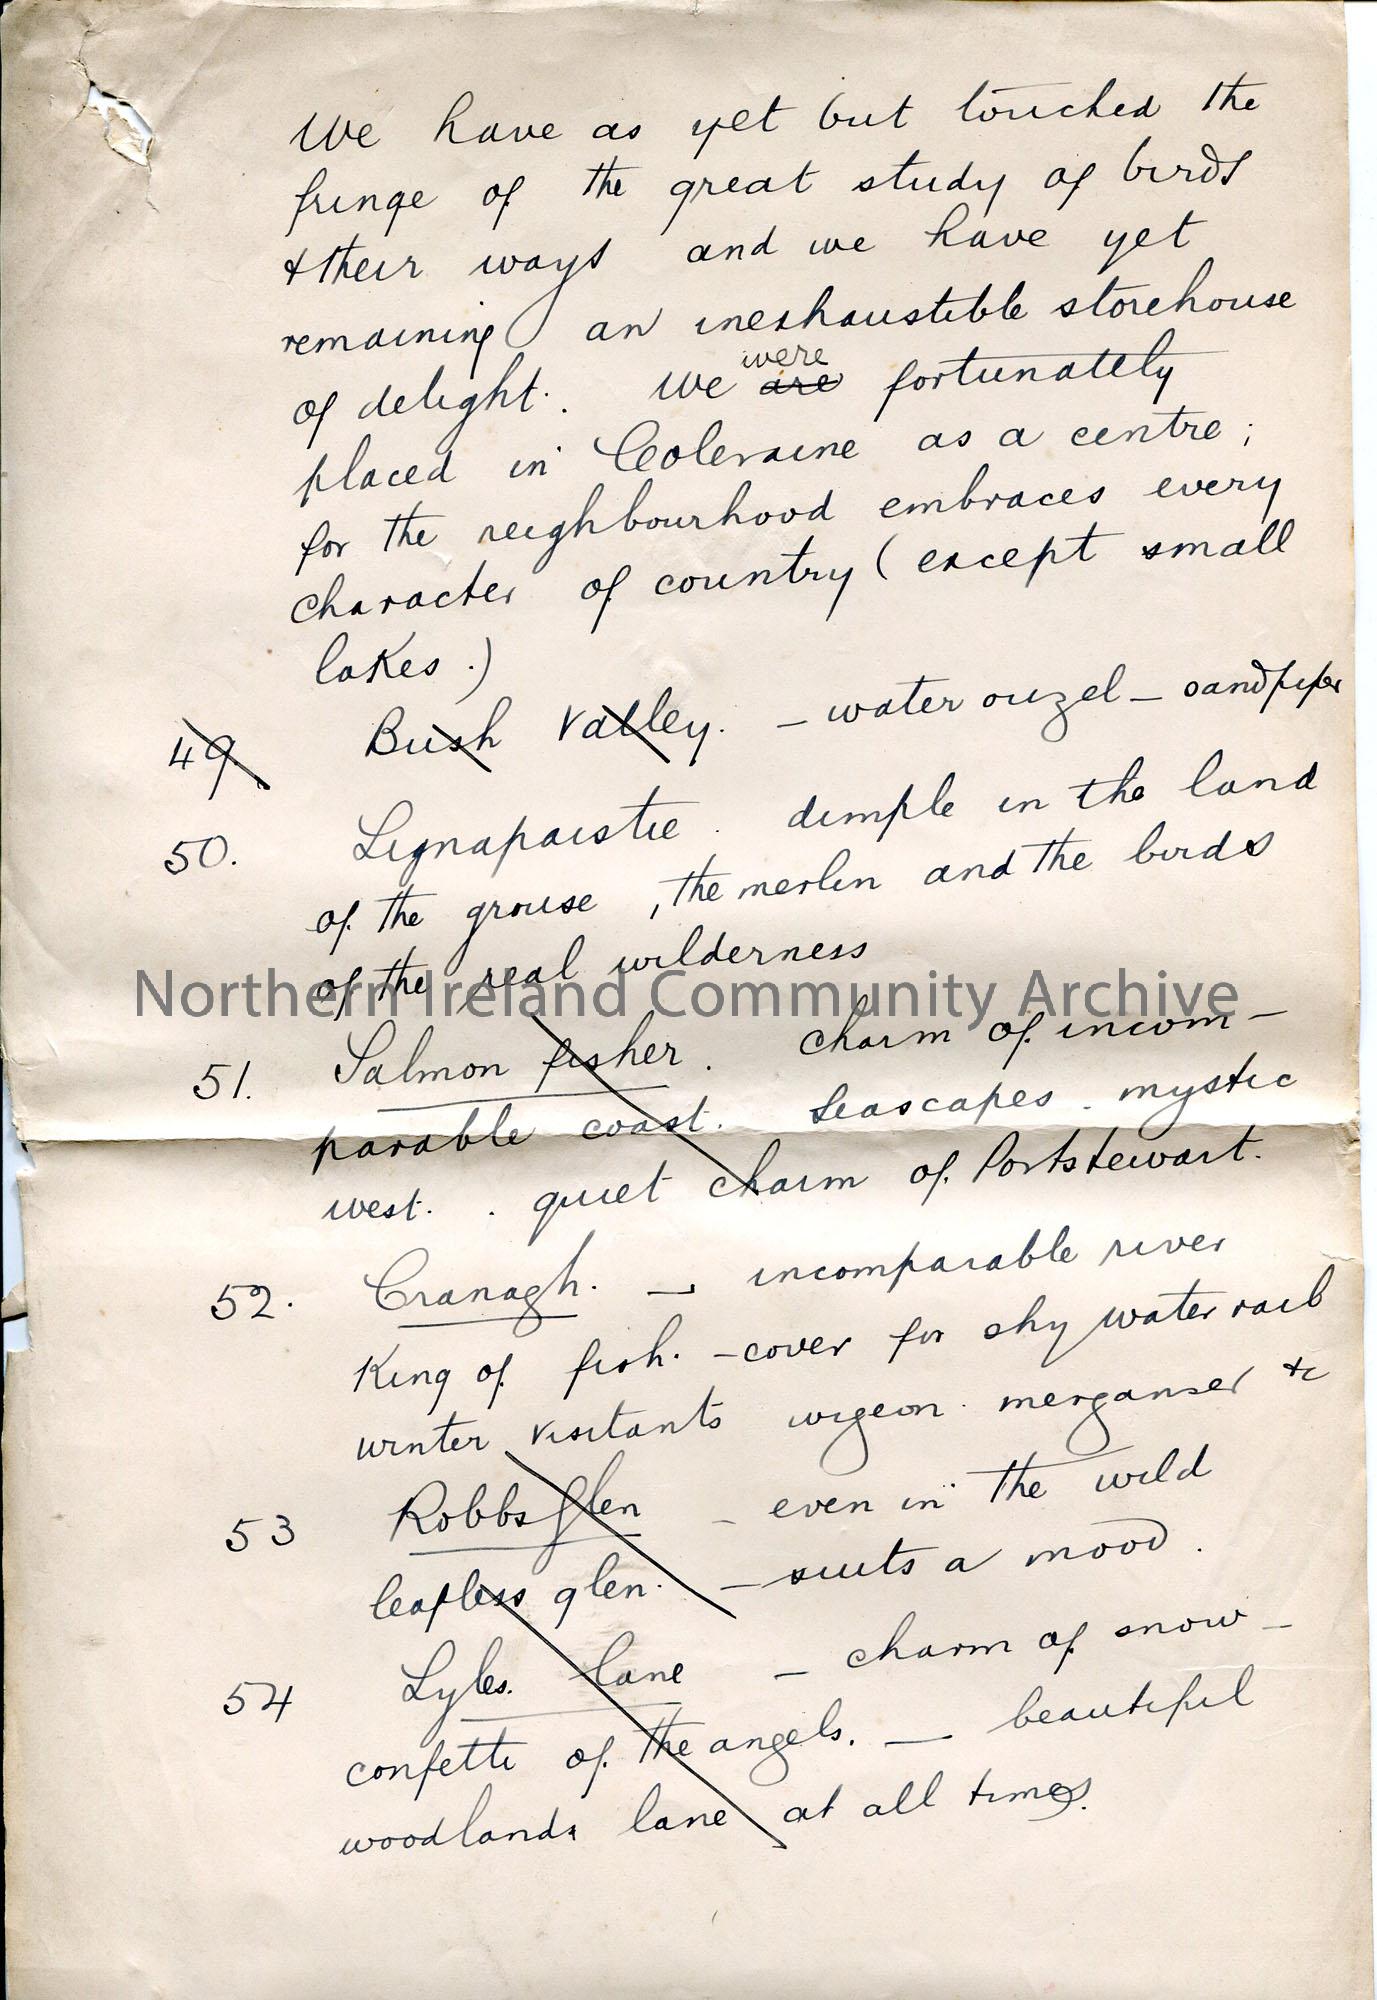 We have as yet but touched the
fringe of the great study of birds
& their ways and we have yet
remaining an inexhaustible storehouse
of delight. We are were fortunately
placed in Coleraine as a centre;
for the neighbourhood embraces every
character of country (except small
lakes.)
49 Bush Valley. - water ouzel - sandpiper
50. Lignapaistie. dimple in the land
of the grouse, the merlin and the birds
of the real wilderness
Northern Ireland Community Archive
51. Salmon fisher. charm of incom-
parable coast. Seascapes. mystic
west. . quiet charm of Portstewart.
52. Cranagh. - incomparable river
King of fish. - cover for shy water rail
winter visitants wigeon. merganser &c
53 Robbs Glen - even in the wild
leafless glen. - suits a mood.
54 Lyles lane - charm of snow -
confetti of the angels. - beautiful
woodlands lane at all times.